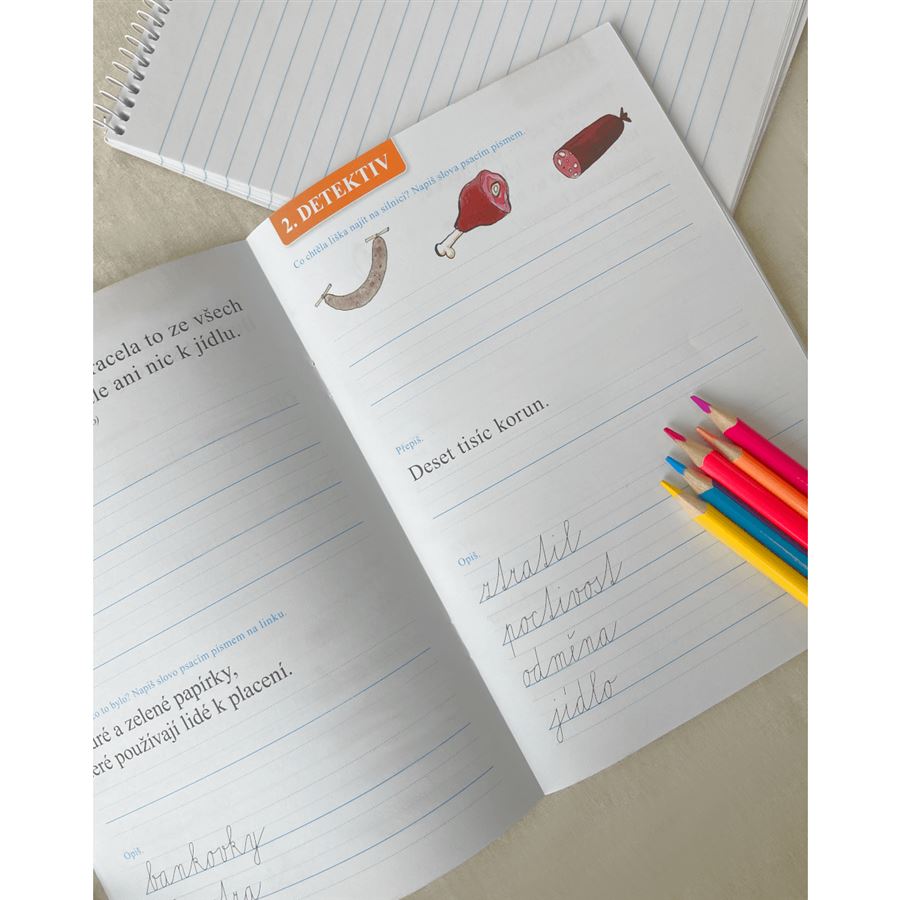 racela to ze všech
le ani nic k jídlu.
to bylo? Napiš slovo psacím písmem na linku.
a zelené papírky,
používají lidé k placení.
Opiš.
bankovky
2. DETEKTIV
Co chtěla liška najít na silnici? Napiš slova psacím písmem.
Přepiš.
Deset tisíc korun.
Opiš.
ztratil
poctivost
odměna
jídlo